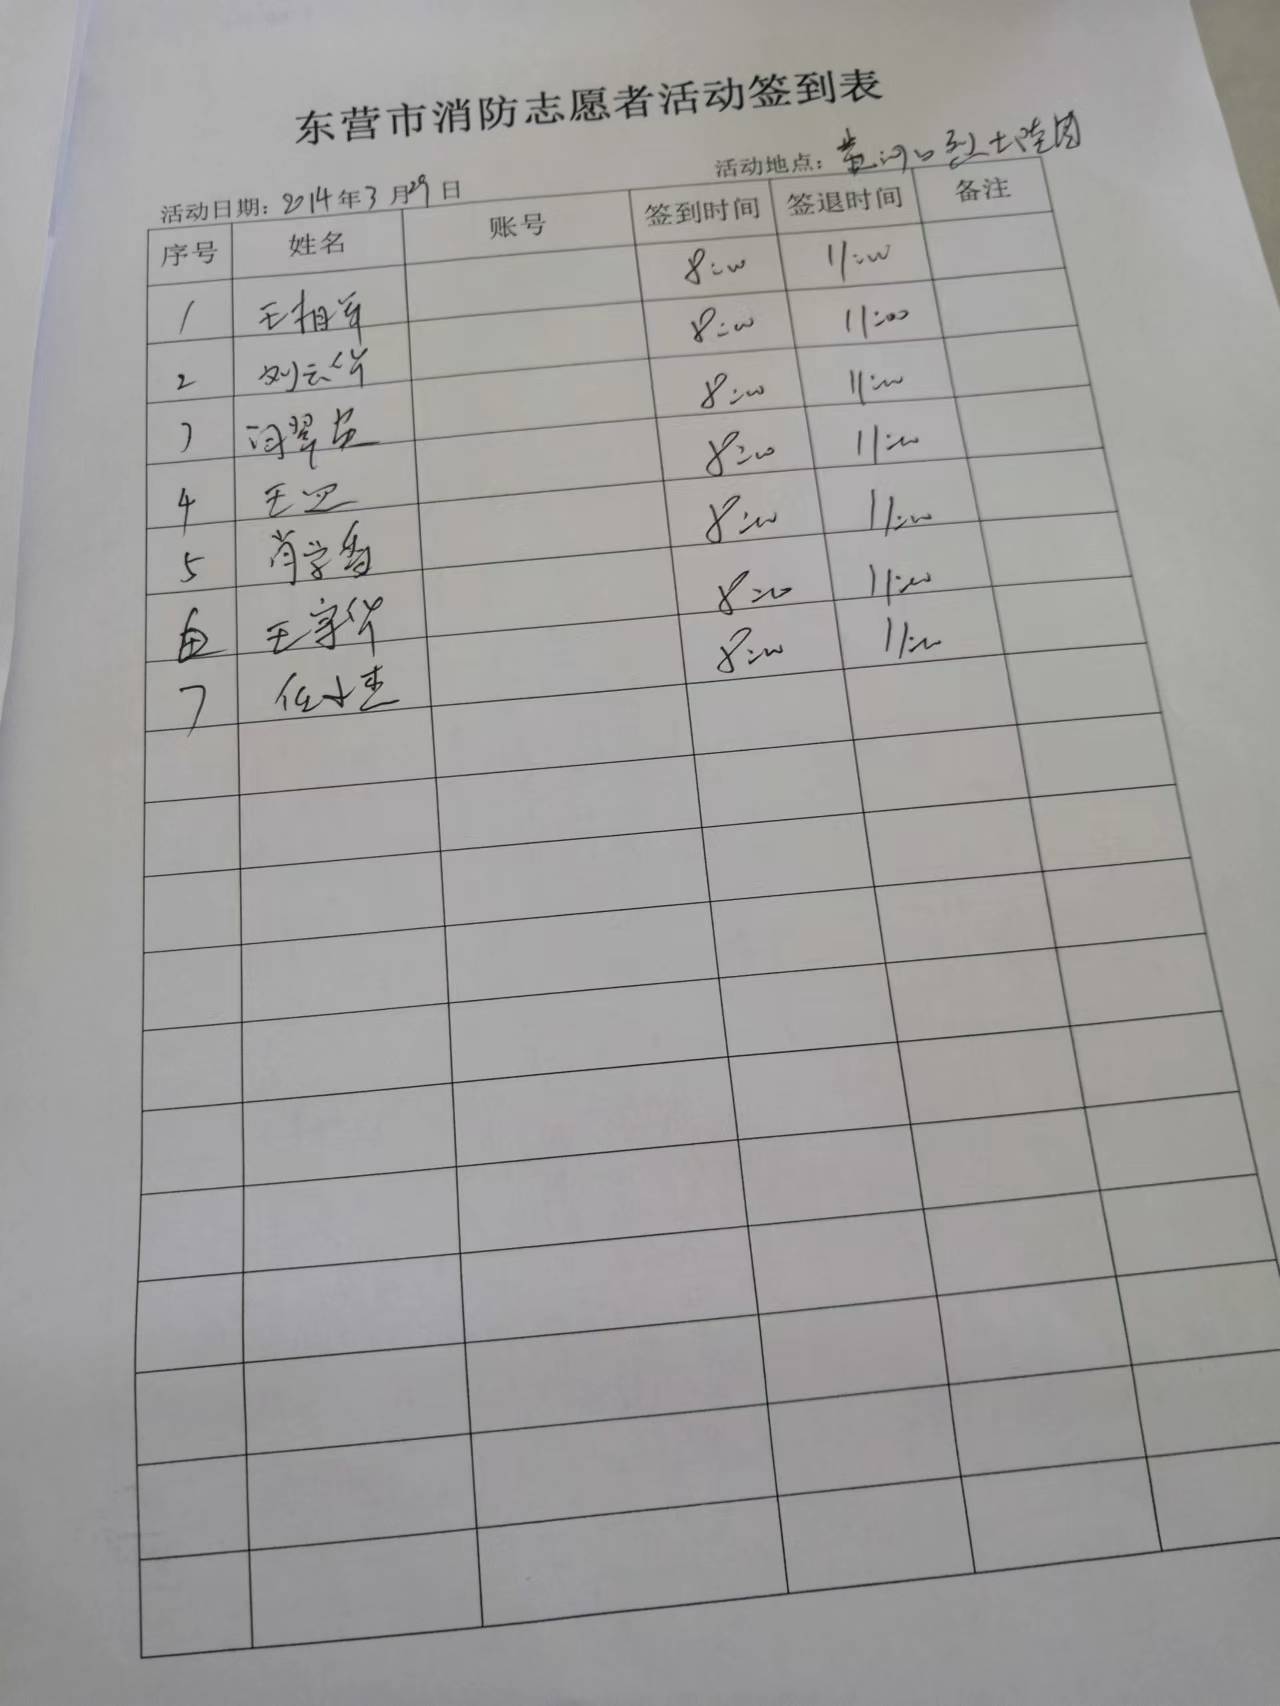 东营市消防志愿者活动签到表
活动日期：2014年3月29日 活动地点：黄河口烈士陵园
序号 姓名 账号 签到时间 签退时间 备注
1 王相军 8:00 11:00
2 刘云华 8:00 11:00
3 闫翠 8:00 11:00
4 王 8:00 11:00
5 肖学香 8:00 11:00
王宗华 8:00 11:00
7 任小杰 8:00 11:00